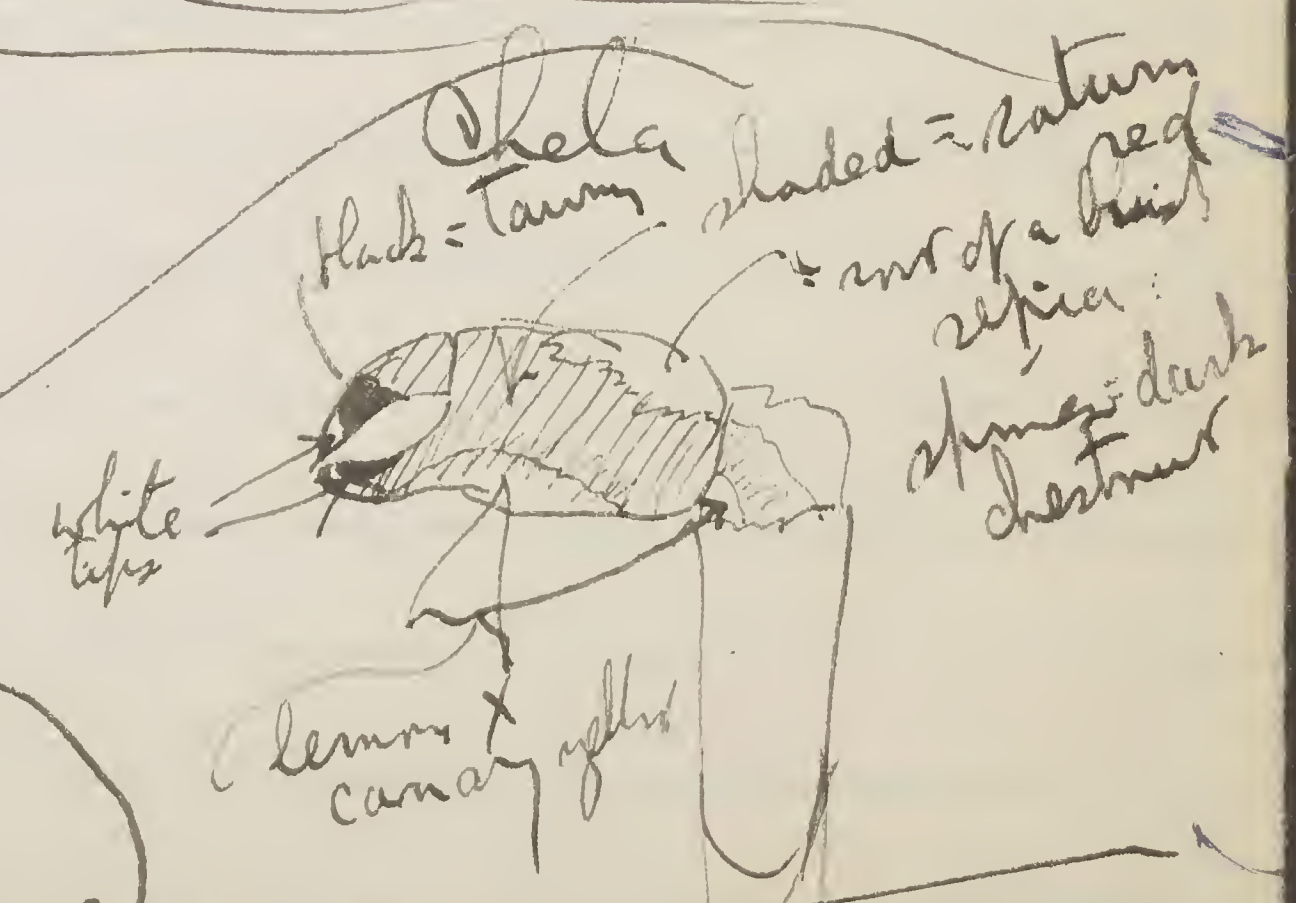 Chela
black = Tawny
shaded = saturn
red
= sort of a
sepia
spines = dark
chestnut
white
tips
lemon
yellow